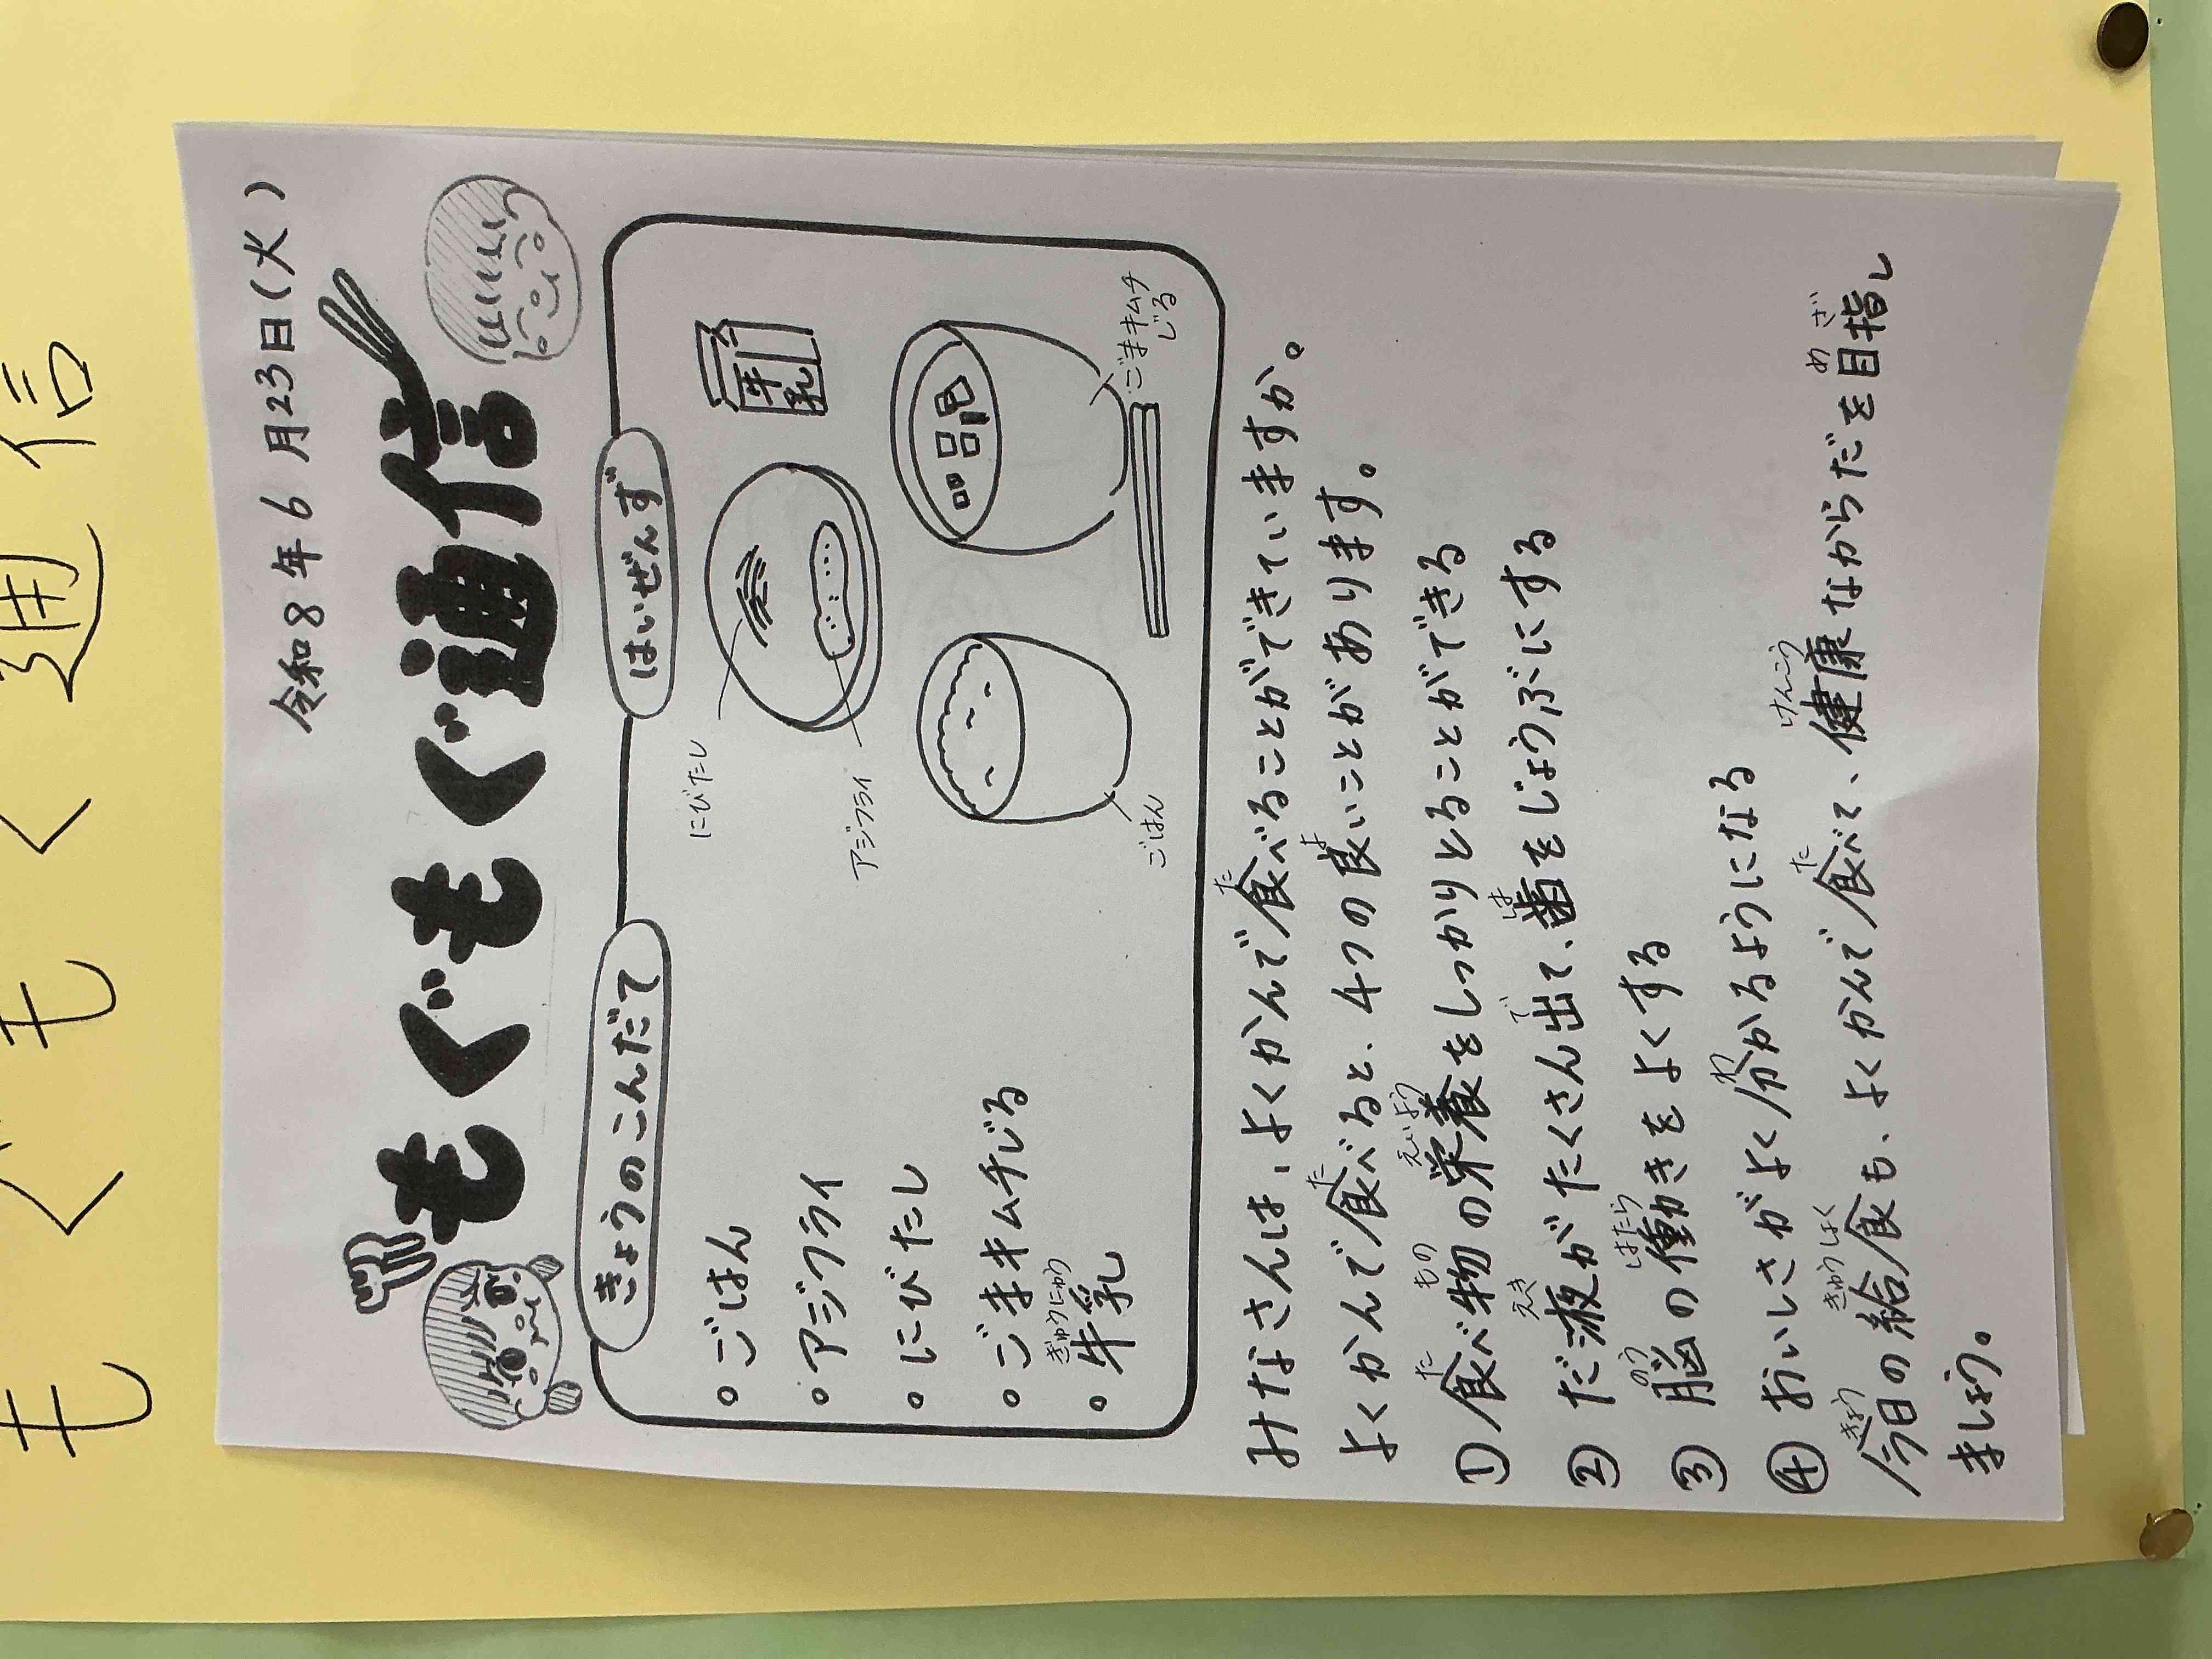 もぐもぐ通信
令和8年6月23日(火)
もぐもぐ通信
きょうのこんだて
はいぜんず
・ごはん
・アジフライ
・にびたし
・ごまキムチじる
ぎゅうにゅう
・牛乳
にびたし
アジフライ
牛乳
ごはん
ごまキムチ
じる
た
みなさんは、よくかんで食べることができていますか。
た よ
よくかんで食べると、4つの良いことがあります。
た もの えいよう
①食べ物の栄養をしっかりとることができる
えき で は
②だ液がたくさん出て、歯をじょうぶにする
のう はたら
③脳の働きをよくする
わ
④おいしさがよく分かるようになる
きょう きゅうしょく た けんこう め ざ
今日の給食も、よくかんで食べて、健康なからだを目指し
ましょう。